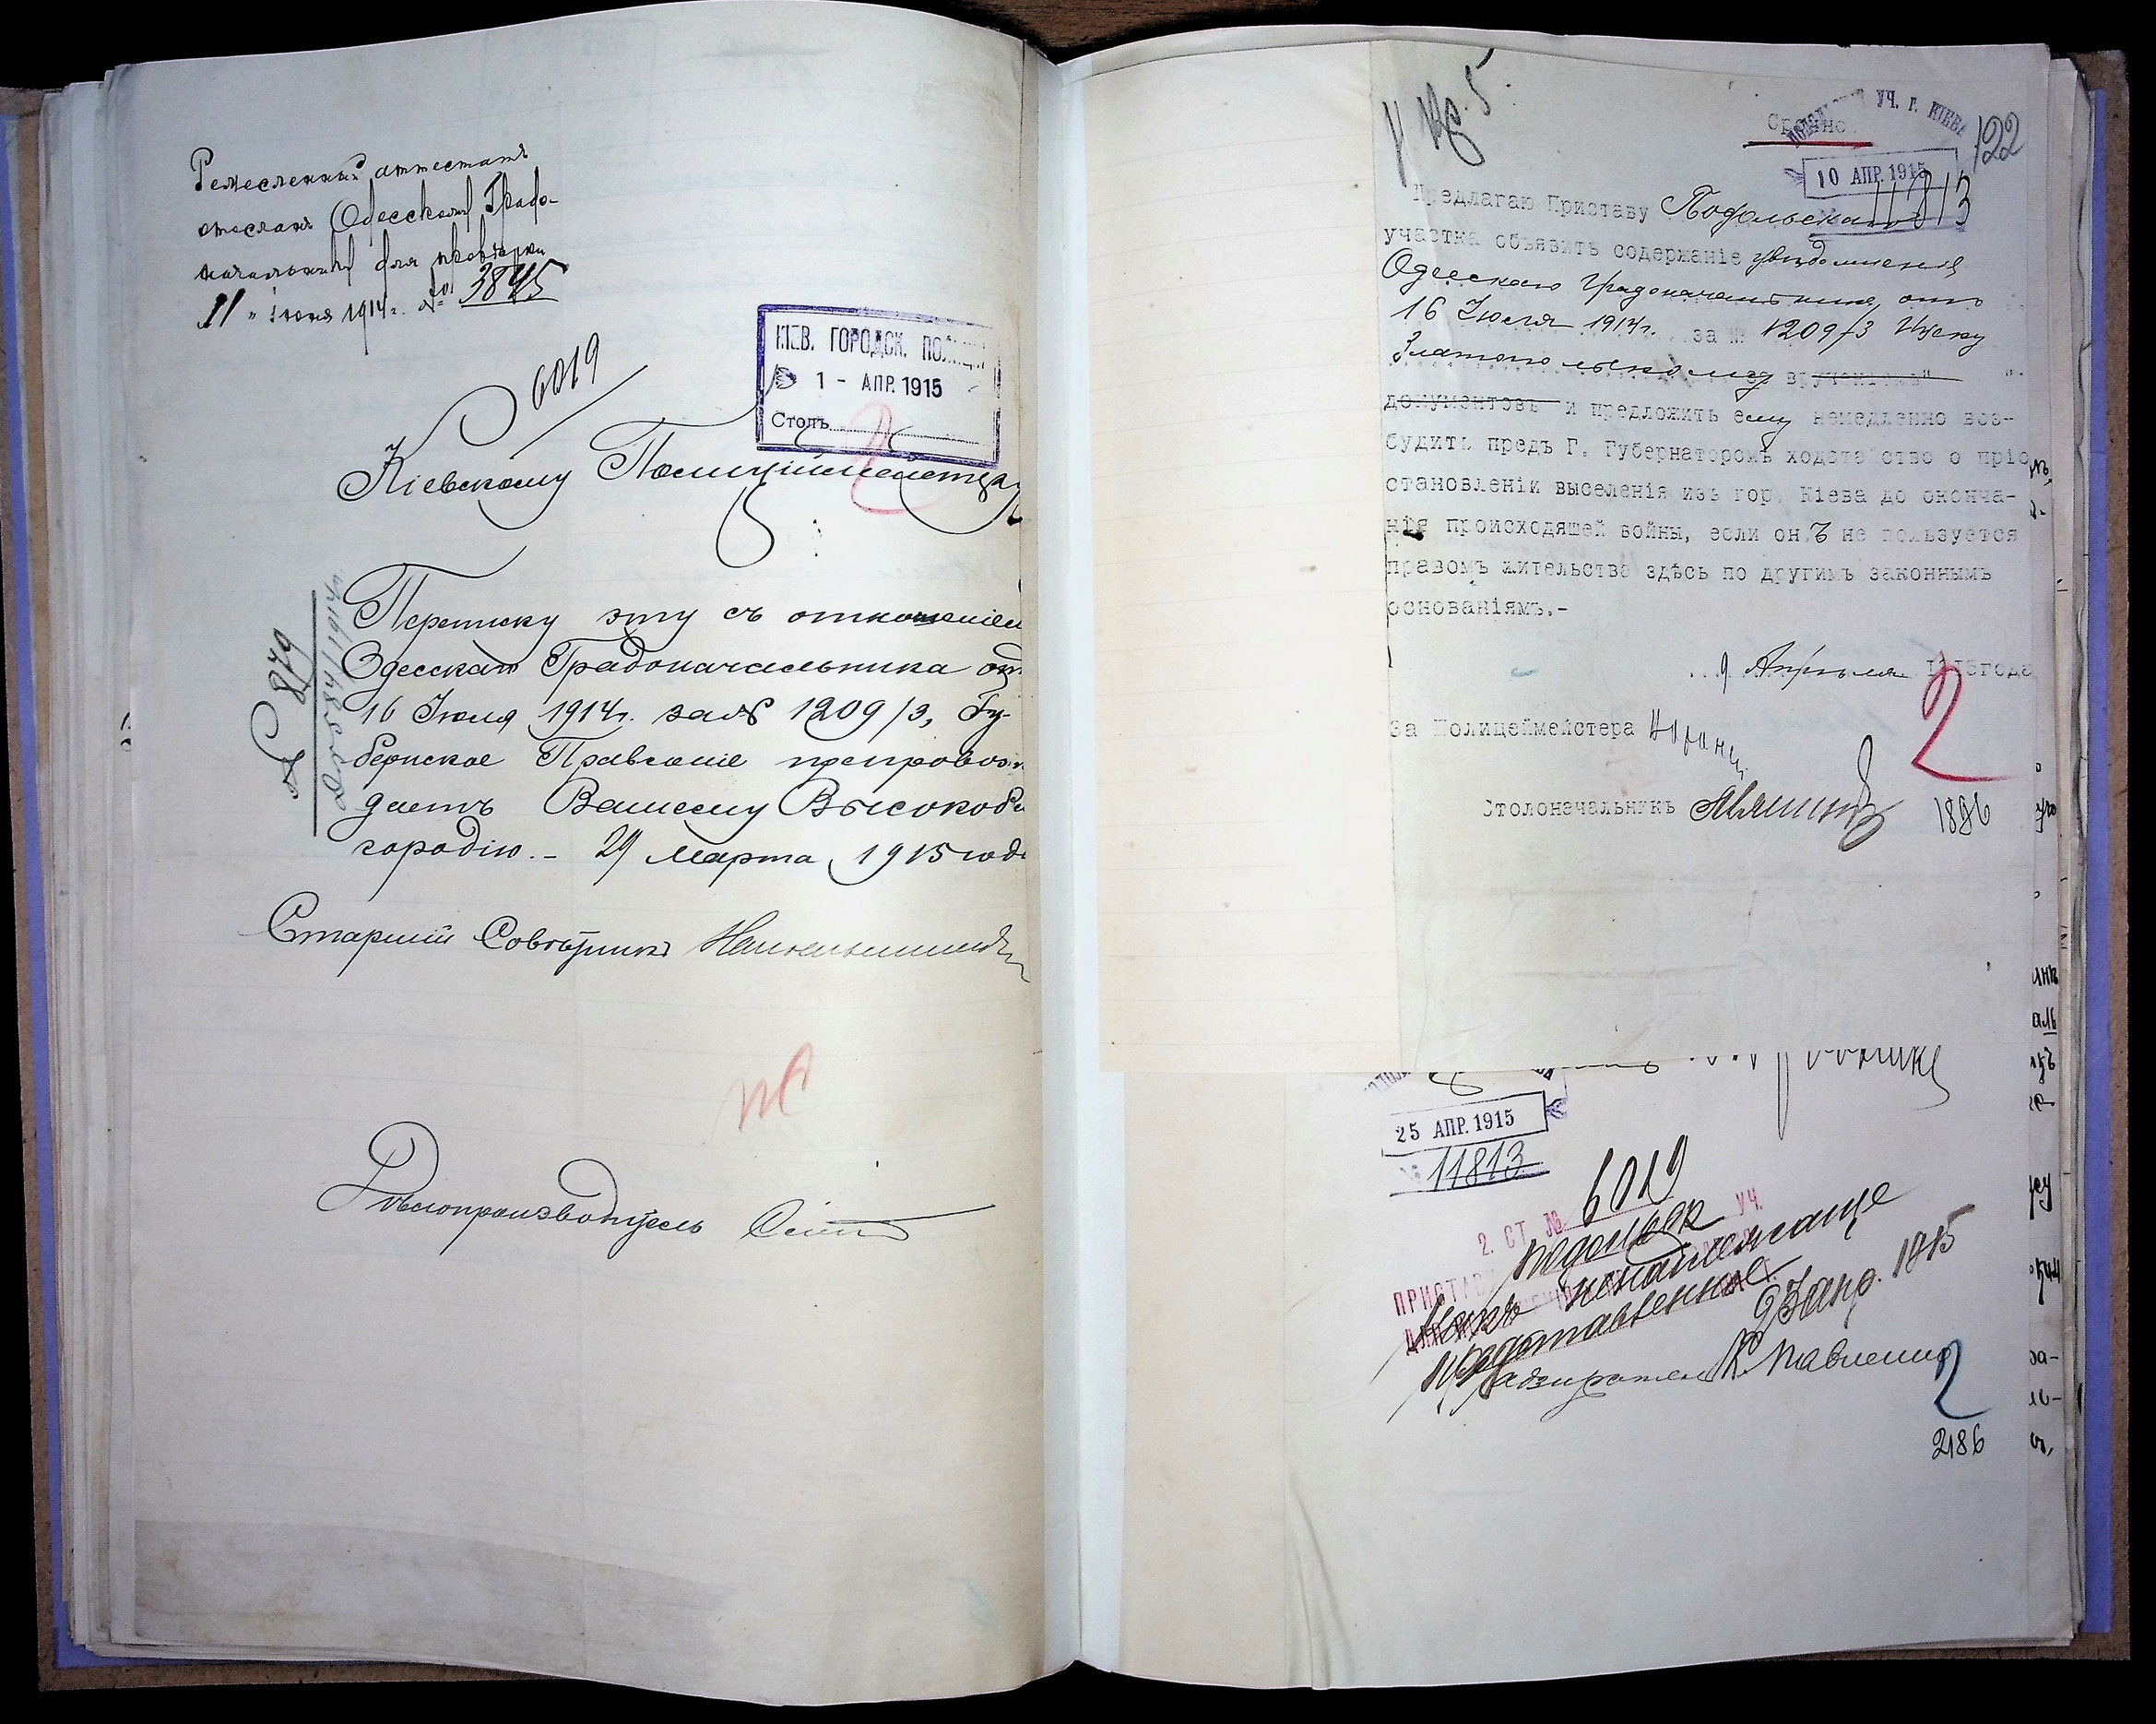 Ремесленный аттестатъ
отосланъ Одесскому Градо-
начальнику для провѣрки
11 " іюня 1914 г. № 3845
6019
КІЕВ. ГОРОДСК. ПОЛИЦІИ
1 - АПР. 1915
Столъ
2
Кіевскому Полиціймейстеру
№ 879
Переписку эту съ отношеніем
Одесскаго Градоначальника отъ
16 Іюля 1914 г. за № 1209/з, Гу-
бернское Правленіе препровож-
даетъ Вашему Высокобла
городію.- 29 Марта 1915 года
Старшій Совѣтникъ
Дѣлопроизводитель
К. 5.
Срочно.
УЧ. Г. КІЕВА
122
10 АПР. 1915
11813
Предлагаю Приставу Подольскаго
участка объявить содержаніе увѣдомленія
Одесскаго Градоначальника, отъ
16 Іюля 1914 г. за № 1209/з Ицеку
Златопольскому со врученіемъ
документовъ и предложить ему немедленно воз-
будить предъ Г. Губернаторомъ ходатайство о пріо
становленіи выселенія изъ гор. Кіева до оконча-
нія происходящей войны, если он.ъ не пользуется
правомъ жительства здѣсь по другимъ законнымъ
основаніямъ.-
9 Апрѣля 1915года
За Полицеймейстера
2
Столоначальникъ
1886
25 АПР. 1915
№ 11813
2. СТ. № 6019
ПРИСТАВУ Подольск УЧ.
ненадлежаще
представленное
23 апр. 1915
Надзиратель К. Павленко
2
2186